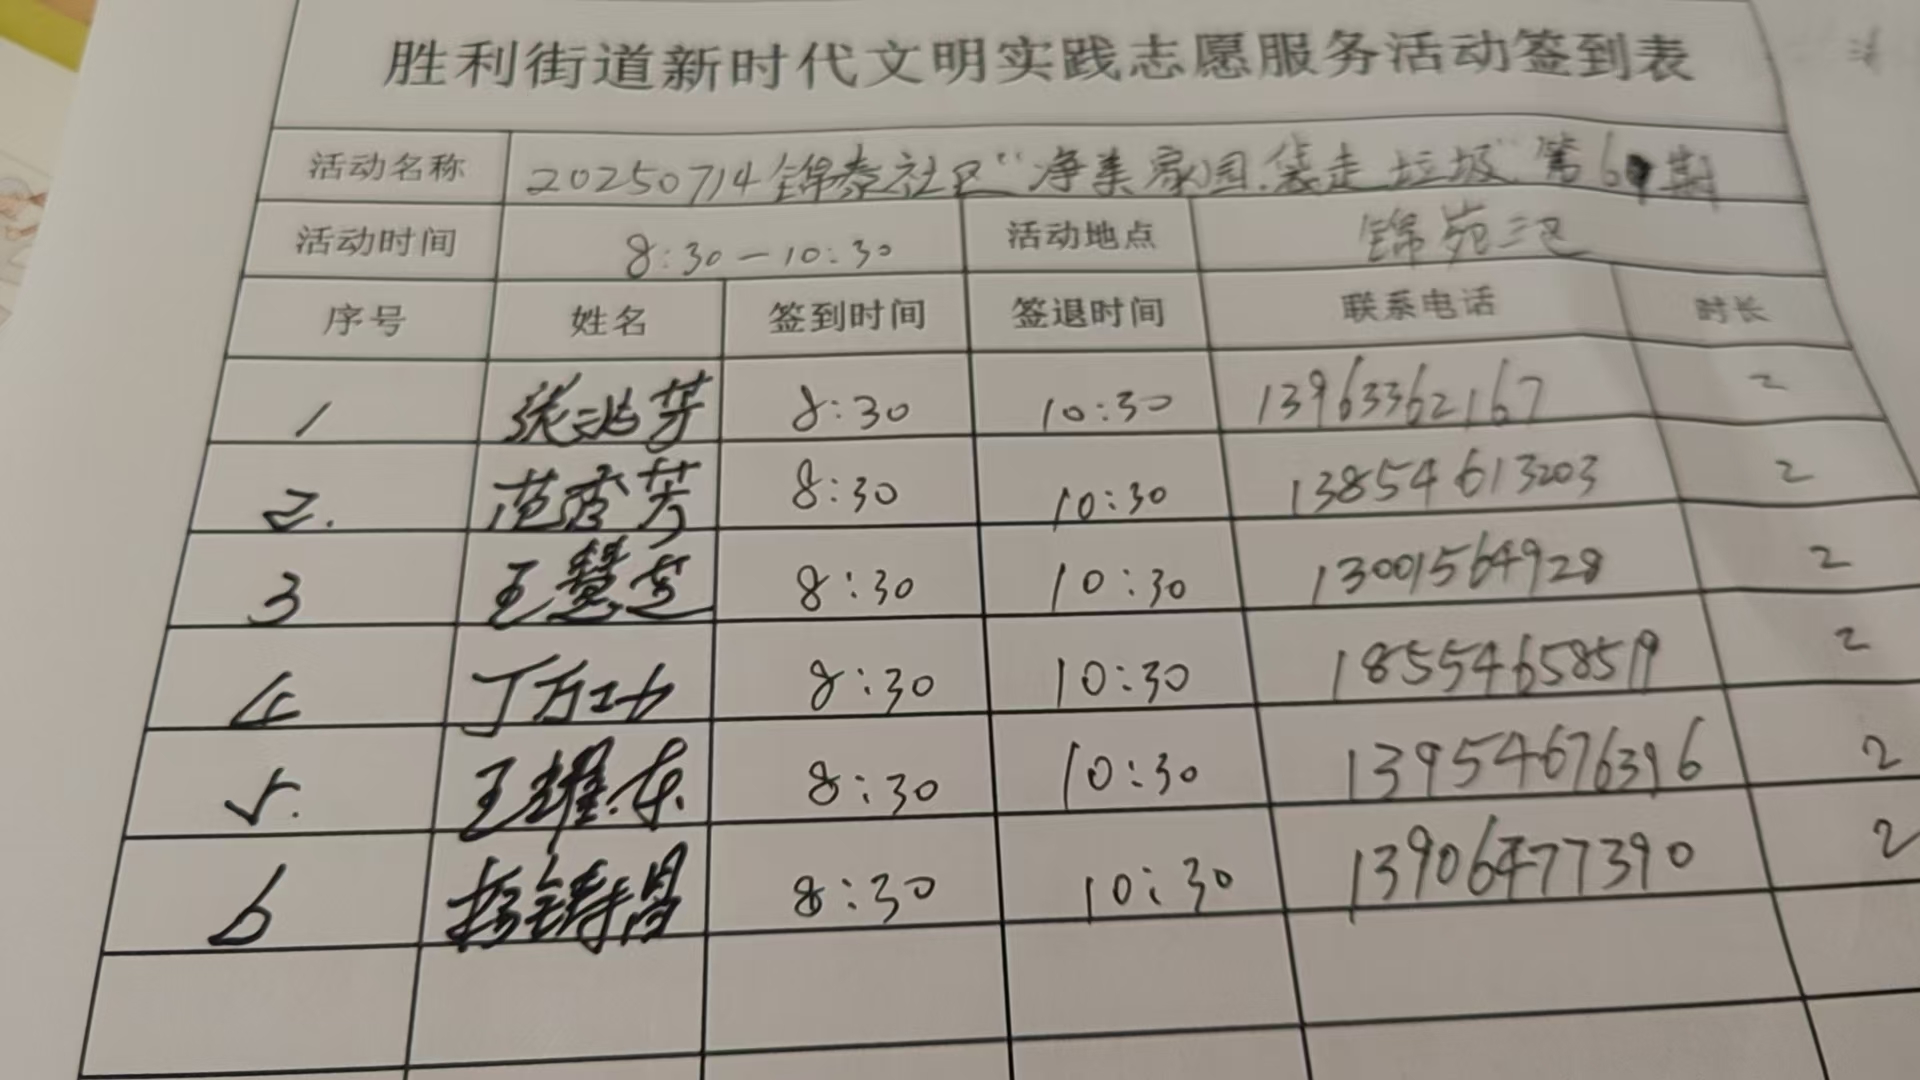 胜利街道新时代文明实践志愿服务活动签到表
活动名称 20250714锦泰社区“净美家园.袋走垃圾”第6期
活动时间 8:30—10:30 活动地点 锦苑三区
序号 姓名 签到时间 签退时间 联系电话 时长
1 张洪芳 8:30 10:30 13963362167 2
2. 范秀芳 8:30 10:30 13854613203 2
3 王慧芝 8:30 10:30 13001564928 2
4 丁方功 8:30 10:30 18554658519 2
5. 王耀东 8:30 10:30 13954676396 2
6 杨铸昌 8:30 10:30 13906477390 2